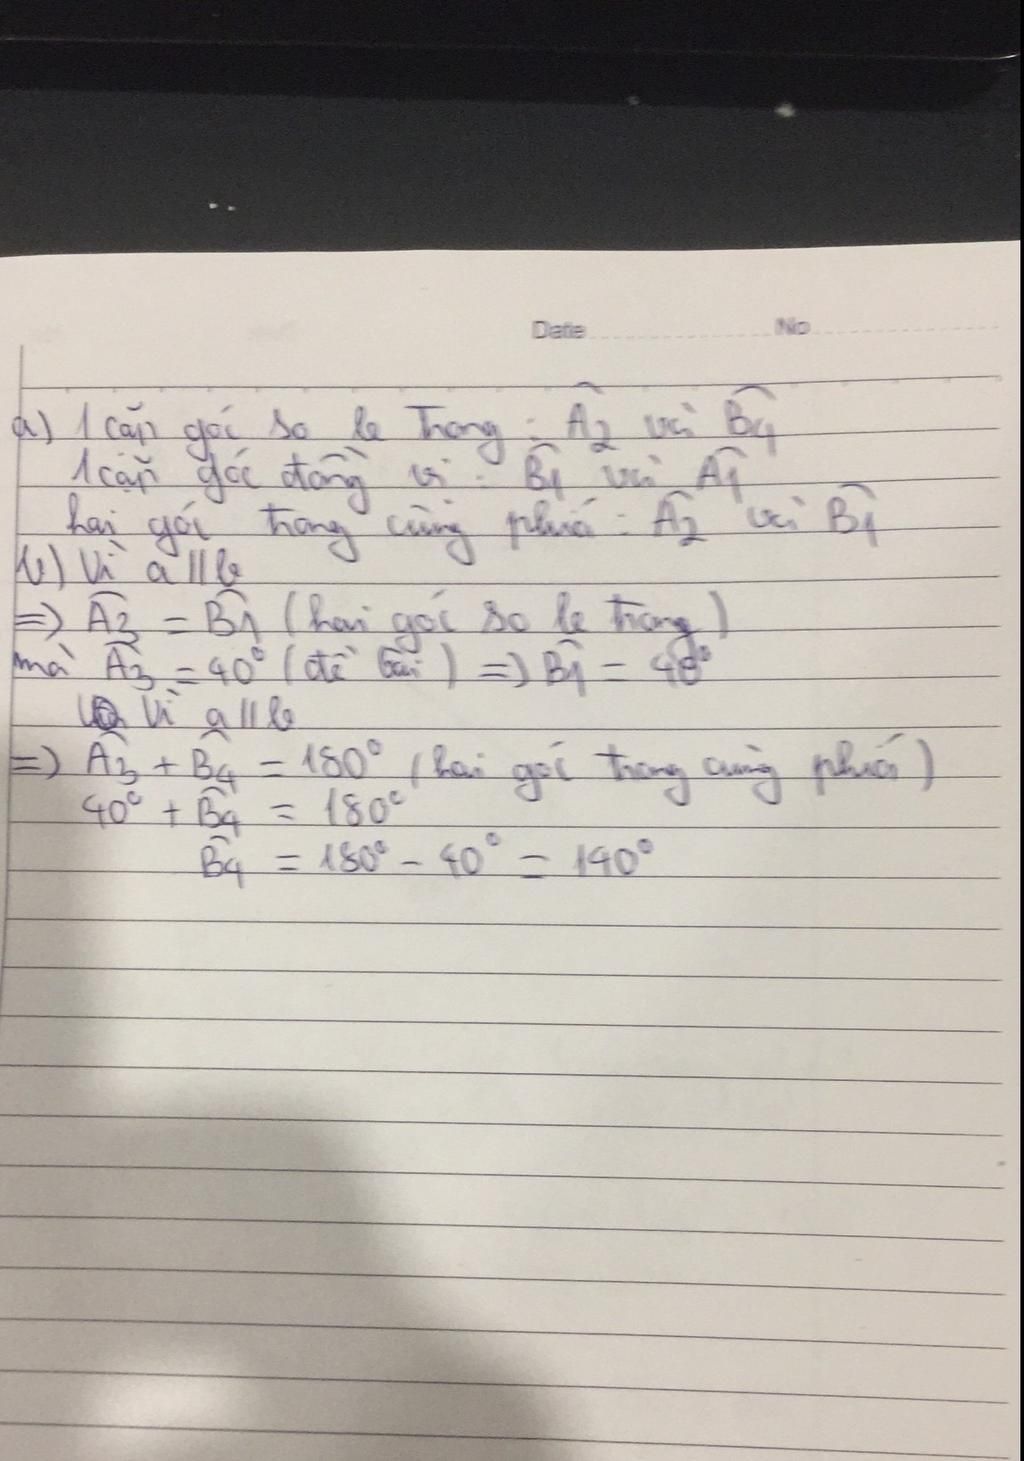 Date No
a) 1 cặp góc so le trong : Â2 và B̂4
1 cặp góc đồng vị : B̂1 và Â1
hai góc trong cùng phía : Â2 và B̂1
b) Vì a // b
=> Â3 = B̂1 (hai góc so le trong)
mà Â3 = 40° (đề bài) => B̂1 = 40°
Vì a // b
=> Â3 + B̂4 = 180° (hai góc trong cùng phía)
40° + B̂4 = 180°
B̂4 = 180° - 40° = 140°